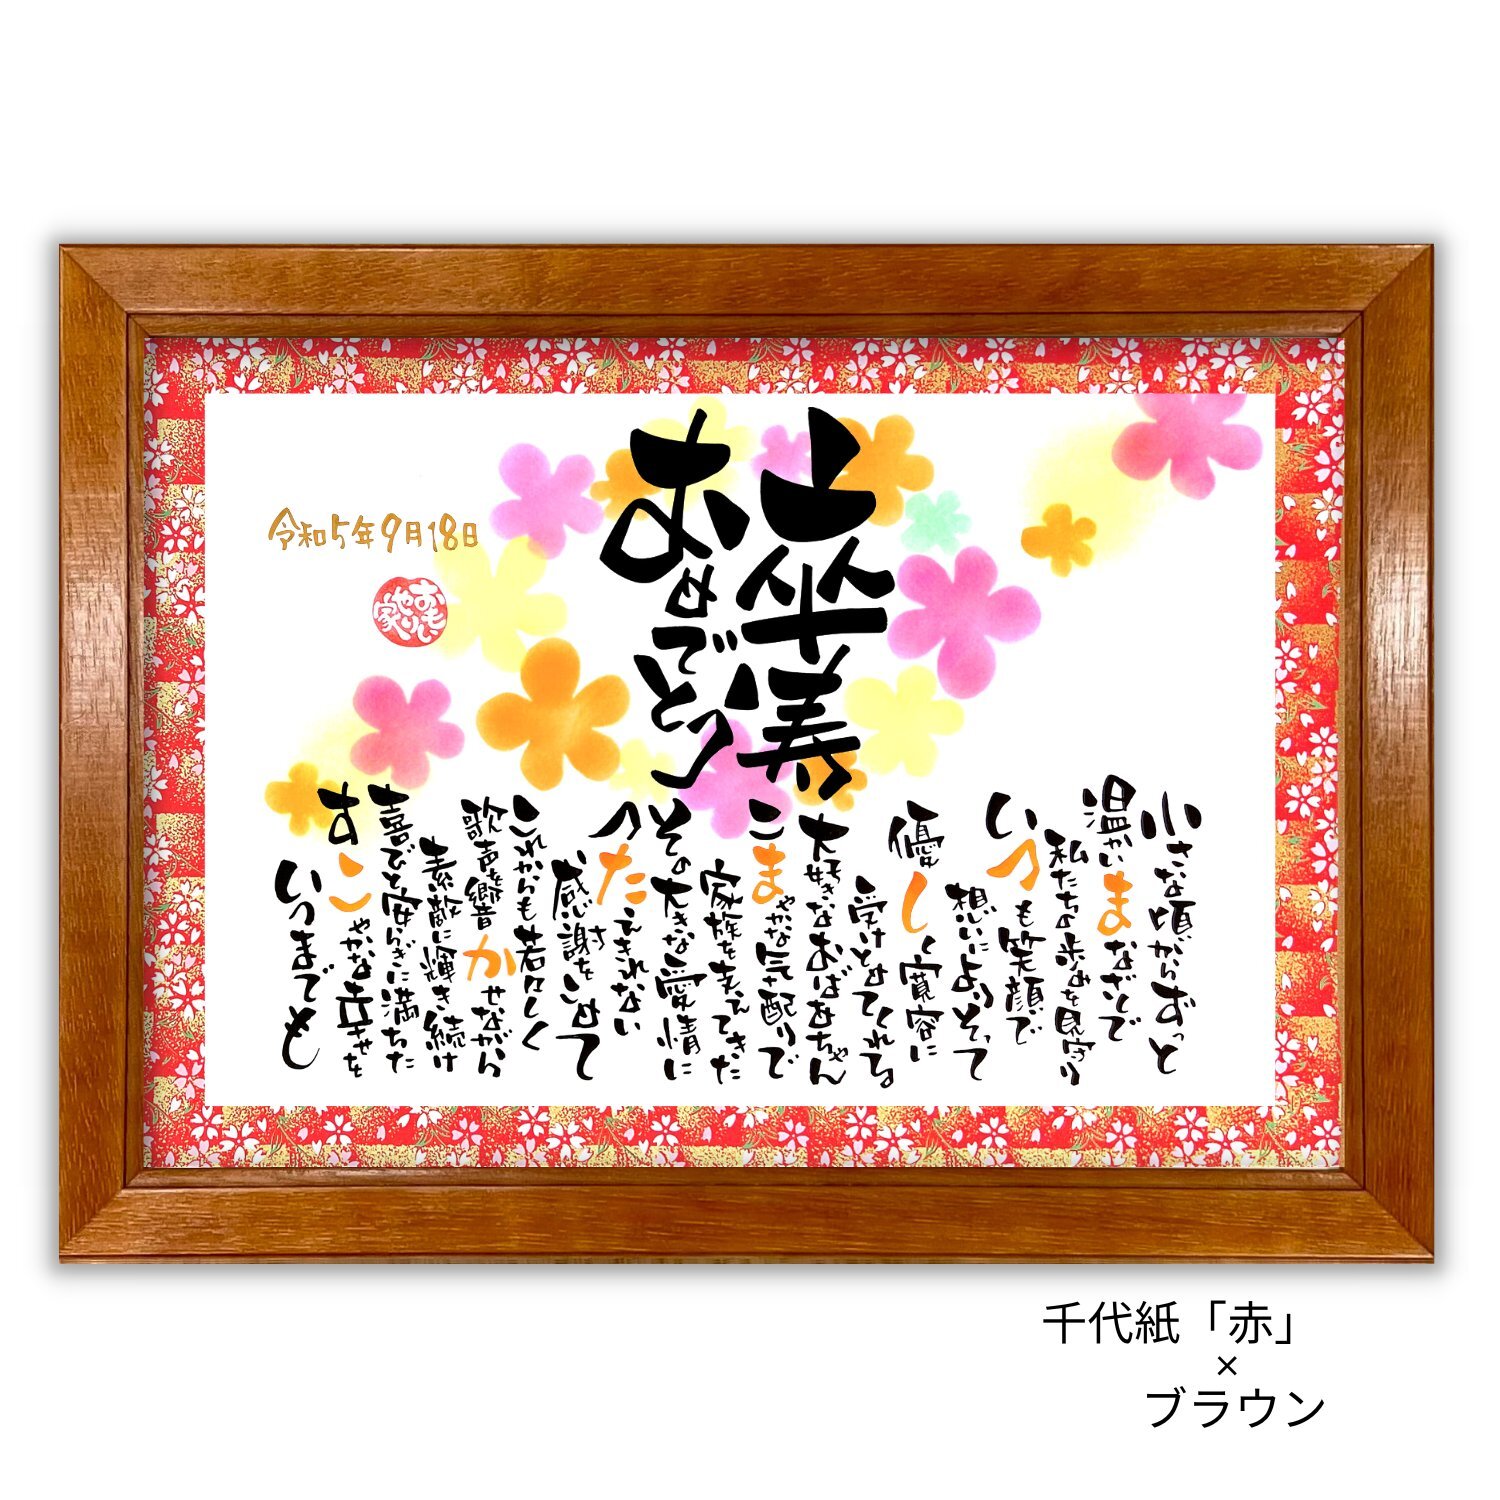 卒寿
おめでとう
令和5年9月18日
おもいやり家
小さな頃からずっと
温かいまなざしで
私たちの歩みを見守り
いつも笑顔で
想いによりそって
優しく寛容に
受けとめてくれる
大好きなおばあちゃん
こまやかな気配りで
家族を支えてきた
その大きな愛情に
つたえきれない
感謝をこめて
これからも若々しく
歌声を響かせながら
素敵に輝き続け
喜びと安らぎに満ちた
すこやかな幸せを
いつまでも
千代紙「赤」
×
ブラウン